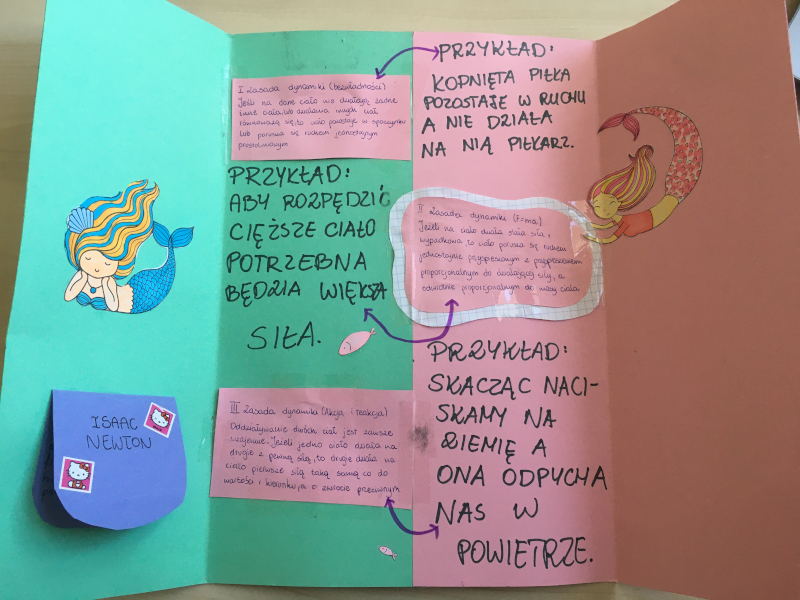 I Zasada dynamiki (bezwładności)
Jeśli na dane ciało nie działają żadne
inne ciała, lub działania innych ciał
równoważą się, to ciało pozostaje w spoczynku
lub porusza się ruchem jednostajnym
prostoliniowym
PRZYKŁAD:
KOPNIĘTA PIŁKA
POZOSTAJE W RUCHU
A NIE DZIAŁA
NA NIĄ PIŁKARZ.
PRZYKŁAD:
ABY ROZPĘDZIĆ
CIĘŻSZE CIAŁO
POTRZEBNA
BĘDZIA WIĘKSZA
SIŁA.
II Zasada dynamiki (F=ma)
Jeżeli na ciało działa stała siła
wypadkowa, to ciało porusza się ruchem
jednostajnie przyspieszonym z przyspieszeniem
proporcjonalnym do działającej siły, a
odwrotnie proporcjonalnym do masy ciała.
III Zasada dynamiki (Akcja i reakcja)
Oddziaływanie dwóch ciał jest zawsze
wzajemne. Jeżeli jedno ciało działa na
drugie z pewną siłą, to drugie działa na
ciało pierwsze siłą taką samą co do
wartości i kierunku, o zwrocie przeciwnym
PRZYKŁAD:
SKACZĄC NACI-
SKAMY NA
ZIEMIĘ A
ONA ODPYCHA
NAS W
POWIETRZE.
ISAAC
NEWTON